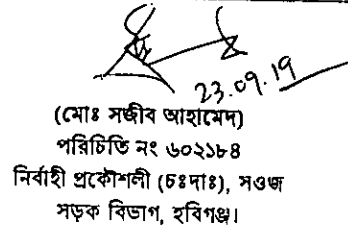 23.09.19
(মোঃ সজীব আহামেদ)
পরিচিতি নং ৬০২১৮৪
নির্বাহী প্রকৌশলী (চঃদাঃ), সওজ
সড়ক বিভাগ, হবিগঞ্জ।